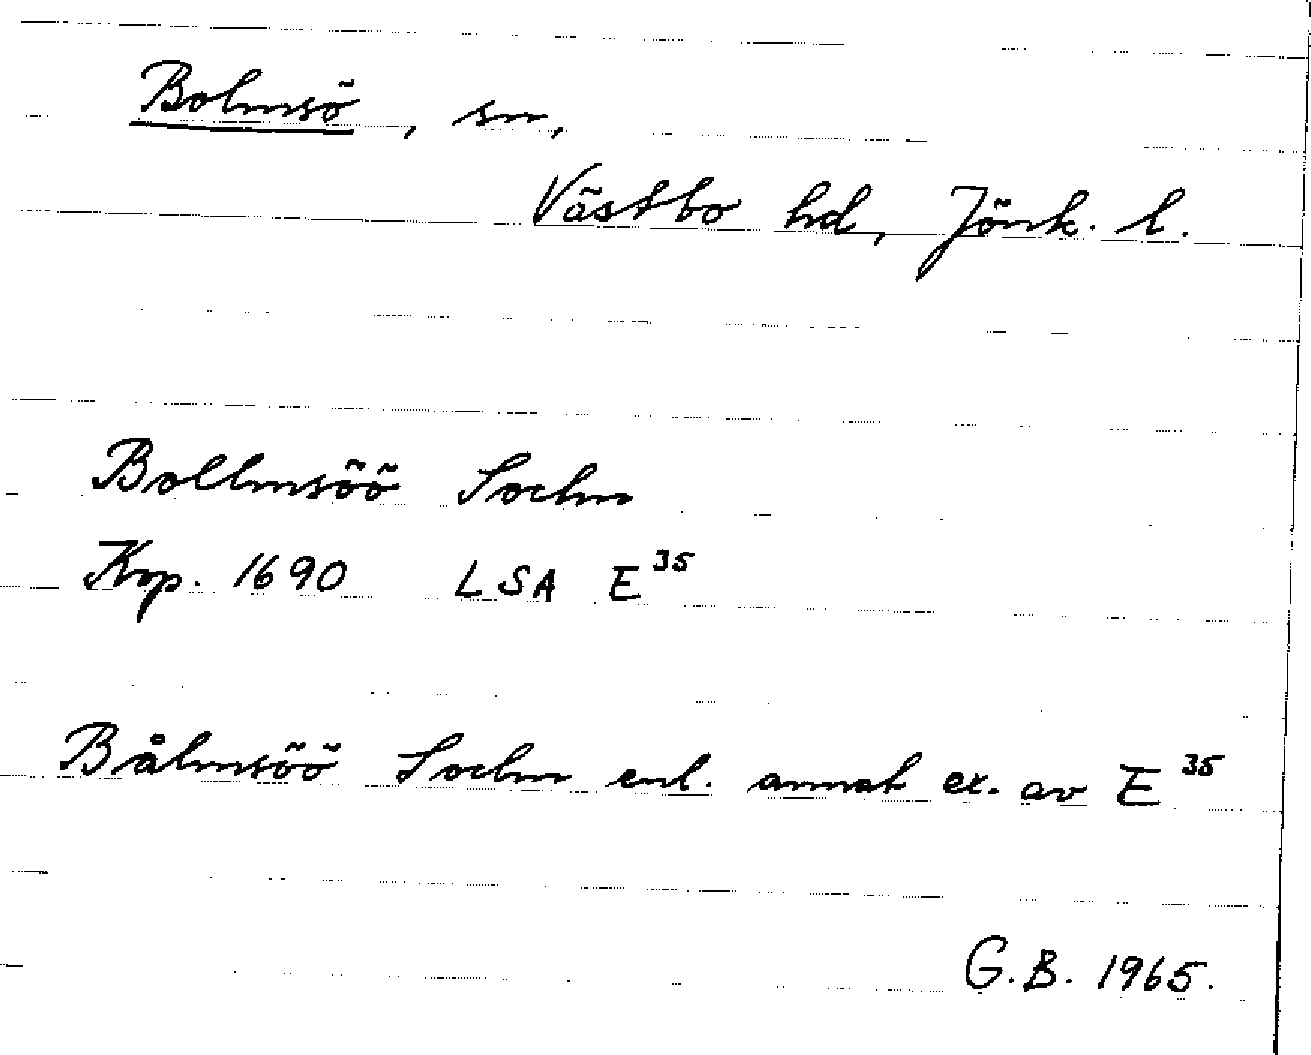 Bolmsö, sn,
Västbo hd, Jönk. l.
Bollmsöö Sochn
Kop. 1690 LSA E³⁵
Bålmsöö Sochn enl. annat ex. av E³⁵
G.B. 1965.